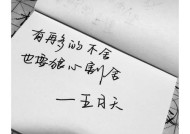 有再多的不舍
也要狠心割舍
——五月天